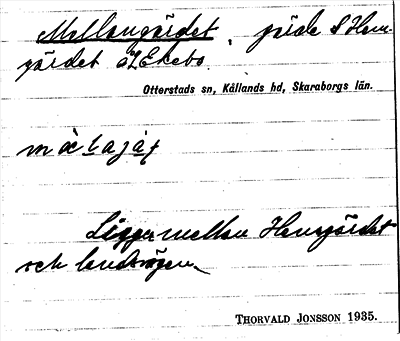 Mellangärdet, gärde S Hem-
gärdet å Ekebo.
Otterstads sn, Kållands hd, Skaraborgs län.
Ligger mellan Hemgärdet
och landsvägen
THORVALD JONSSON 1935.